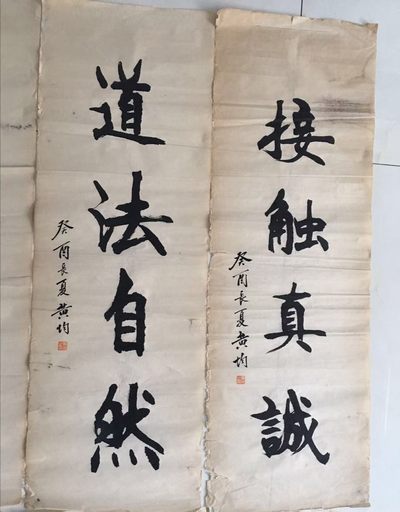 接触真誠
癸酉長夏黄均
道法自然
癸酉長夏黄均